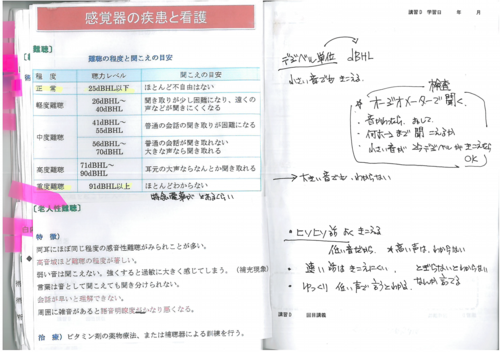 感覚器の疾患と看護
【難聴】
難聴の程度と聞こえの目安
程 度 聴力レベル 聞こえの目安
正 常 25dBHL以下 ほとんど不自由はない
軽度難聴 26dBHL～40dBHL 聞き取りが少し困難になり、遠くの声などが聞きにくくなる
中度難聴 41dBHL～55dBHL 普通の会話の聞き取りが困難になる
56dBHL～70dBHL 普通の会話が聞き取れない 大きな声なら聞き取れる
高度難聴 71dBHL～90dBHL 耳元の大声ならなんとか聞き取れる
重度難聴 91dBHL以上 ほとんどわからない
【老人性難聴】
特 徴）
両耳にほぼ同じ程度の感音性難聴がみられことが多い。
高音域ほど難聴の程度が著しい。
弱い音は聞こえない。強くすると過敏に大きく感じてしまう。（補充現象）
言葉は音として聞こえても聞き分けられない。
会話が早いと理解できない。
周囲に雑音があると語音明瞭度がかなり悪くなる。
治 療）ビタミン剤の薬物療法、または補聴器による訓練を行う。
講習３ 学習日 年 月
デシベル単位 dBHL
小さい音でもきこえる。
検査
オージオメーターで聞く。
小さい音が
きこえるなら
OK
→大きい音でも、わからない
・ヒソヒソ話 よくきこえる
低い音だから、 高い声は、わからない
・速い話はきこえにくい、
・ゆっくり 低い声で言うとわかる、
講習３ 回目講義